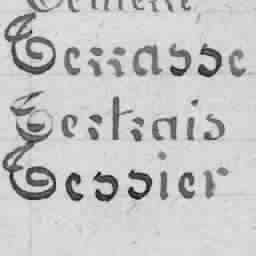 Terrasse
Tertrais
Tessier